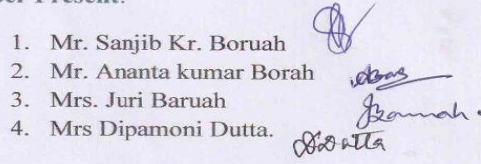 Present:
1. Mr. Sanjib Kr. Boruah
2. Mr. Ananta kumar Borah
3. Mrs. Juri Baruah
4. Mrs Dipamoni Dutta.
DDutta